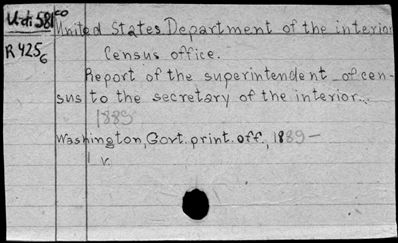 United States Department of the interior
Census office.
R425
6
Report of the superintendent of cen-
sus to the secretary of the interior...
1889
Washington, Govt. print. off., 1889-
v.